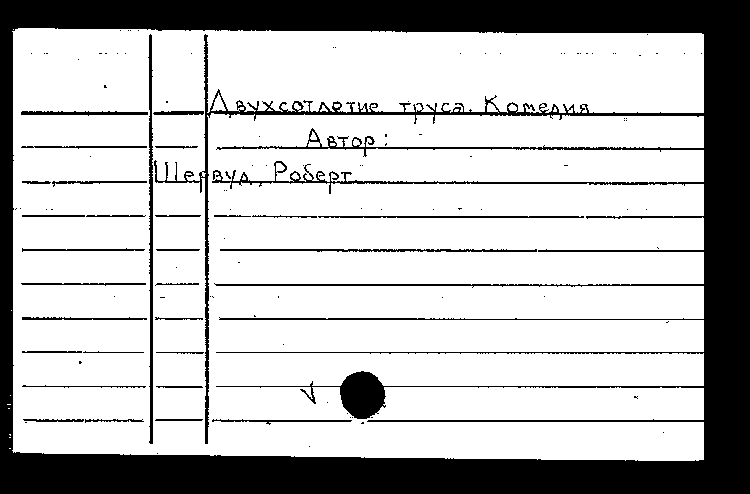 Двухсотлетие труса. Комедия
Автор:
Шервуд, Роберт.
V